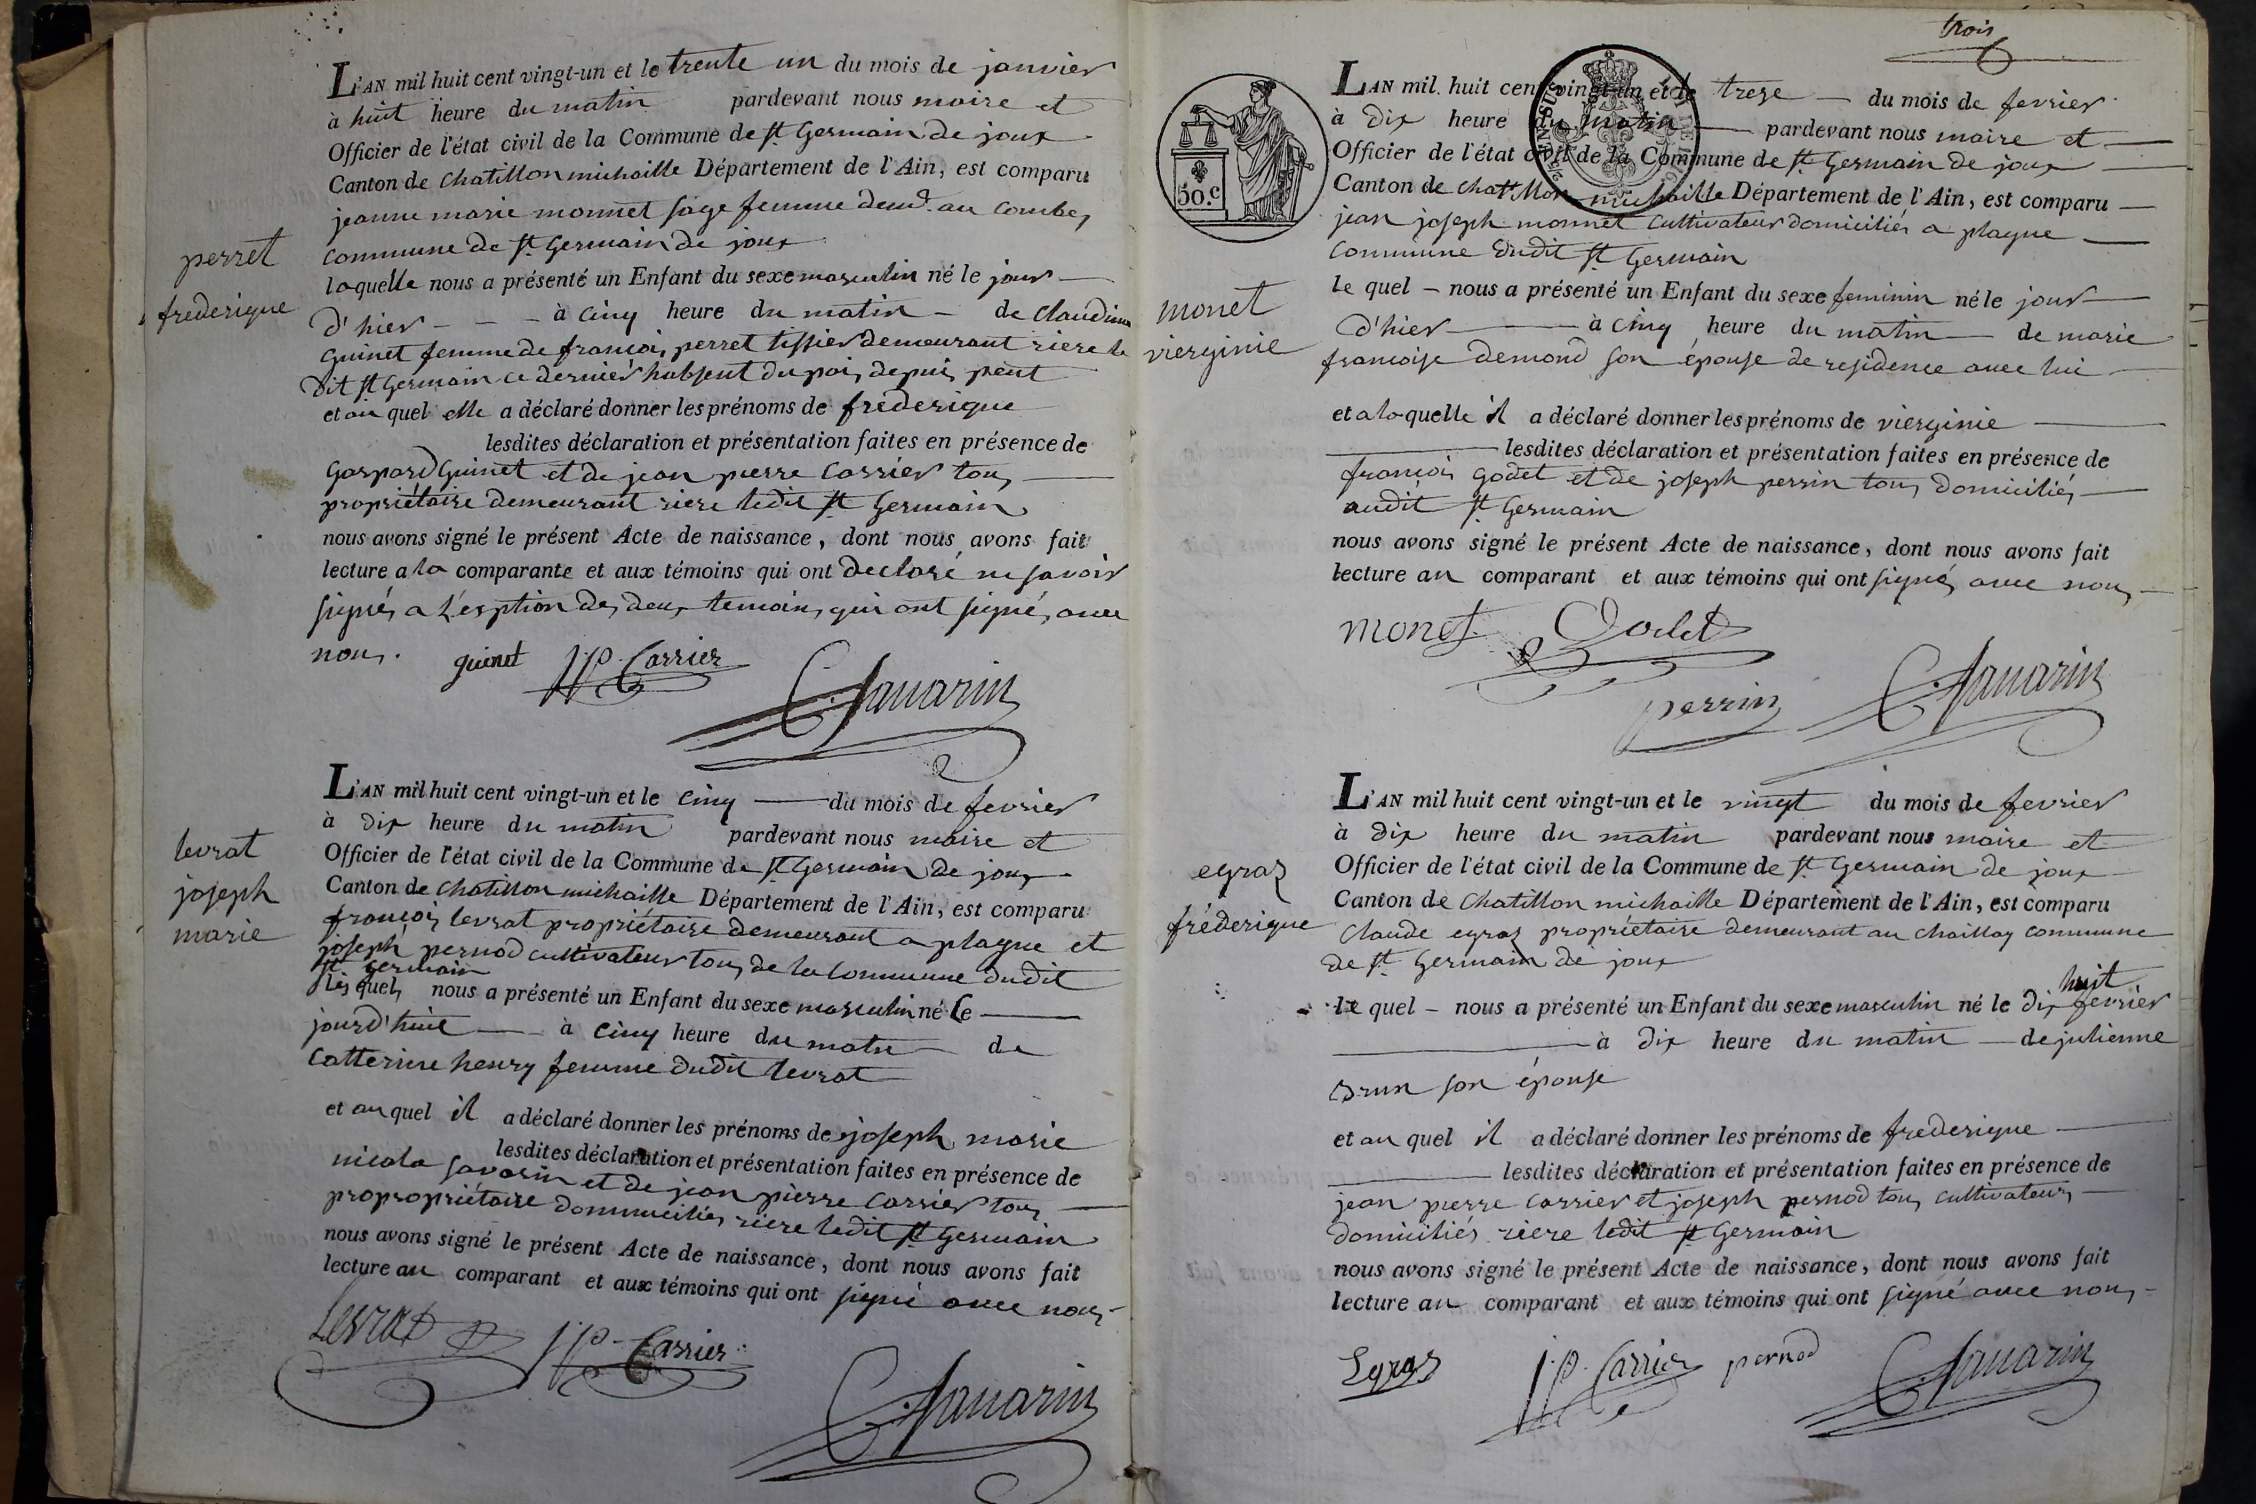 L'AN mil huit cent vingt-un et le trente un du mois de janvier
à huit heure du matin pardevant nous maire et
Officier de l'état civil de la Commune de st Germain de joux
Canton de chatillon michaille Département de l'Ain, est comparu
jeanne marie monnet sage femme demt. au combes
commune de st Germain de joux
perret
frederique
laquelle nous a présenté un Enfant du sexe masculin né le jour
d'hier à cinq heure du matin de claudine
Guinet femme de françois perret tissier demeurant riere le
dit st Germain ce dernier habsent du pais depuis peut
et au quel elle a déclaré donner les prénoms de frederique
lesdites déclaration et présentation faites en présence de
Gaspard Guinet et de jean pierre Carrier tous
propriétaire demeurant riere ledit st Germain
nous avons signé le présent Acte de naissance, dont nous avons fait
lecture a la comparante et aux témoins qui ont declaré ne savoir
signés a l'exption des deux temoins qui ont signés avec
nous.
guinet JP. Carrier
C. Savarin
L'AN mil huit cent vingt-un et le cinq du mois de fevrier
à dix heure du matin pardevant nous maire et
Officier de l'état civil de la Commune de st Germain de joux
Canton de chatillon michaille Département de l'Ain, est comparu
levrat
joseph
marie
françois levrat propriétaire demeurant a plagne et
joseph pernod cultivateur tous de la commune dudit
st germain
lesquels nous a présenté un Enfant du sexe masculin né le
jourd'huit à cinq heure du matin de
Catterine henry femme dudit levrat
et au quel il a déclaré donner les prénoms de joseph marie
lesdites déclaration et présentation faites en présence de
nicola savarin et de jean pierre carrier tous
propropriétaire dommiciliés riere ledit st Germain
nous avons signé le présent Acte de naissance, dont nous avons fait
lecture au comparant et aux témoins qui ont signé avec nous
Levrat JP. Carrier
C. Savarin
trois
L'AN mil huit cent vingt-un et le treze du mois de fevrier
à dix heure du matin pardevant nous maire et
Officier de l'état civil de la Commune de st Germain de joux
Canton de chatillon michaille Département de l'Ain, est comparu
50.C
jean joseph monnet cultivateur domiciliés a plagne
commune dudit st Germain
monet
vierginie
le quel nous a présenté un Enfant du sexe feminin né le jour
d'hier à cinq heure du matin de marie
françoise demond son épouse de residence avec lui
et a laquelle il a déclaré donner les prénoms de vierginie
lesdites déclaration et présentation faites en présence de
françois godet et de joseph perrin tous domiciliés
audit st Germain
nous avons signé le présent Acte de naissance, dont nous avons fait
lecture au comparant et aux témoins qui ont signés avec nous
monet Godet
perrin C. Savarin
L'AN mil huit cent vingt-un et le vingt du mois de fevrier
à dix heure du matin pardevant nous maire et
Officier de l'état civil de la Commune de st Germain de joux
Canton de chatillon michaille Département de l'Ain, est comparu
egraz
fréderique
claude egraz propriétaire demeurant au chaillay commune
de st Germain de joux
le quel nous a présenté un Enfant du sexe masculin né le dix huit fevrier
à dix heure du matin de julienne
Brun son épouse
et au quel il a déclaré donner les prénoms de frederique
lesdites déclaration et présentation faites en présence de
jean pierre carrier et joseph pernod tous cultivateurs
domiciliés riere ledit st Germain
nous avons signé le présent Acte de naissance, dont nous avons fait
lecture au comparant et aux témoins qui ont signé avec nous
Egraz JP. Carrier pernod C. Savarin